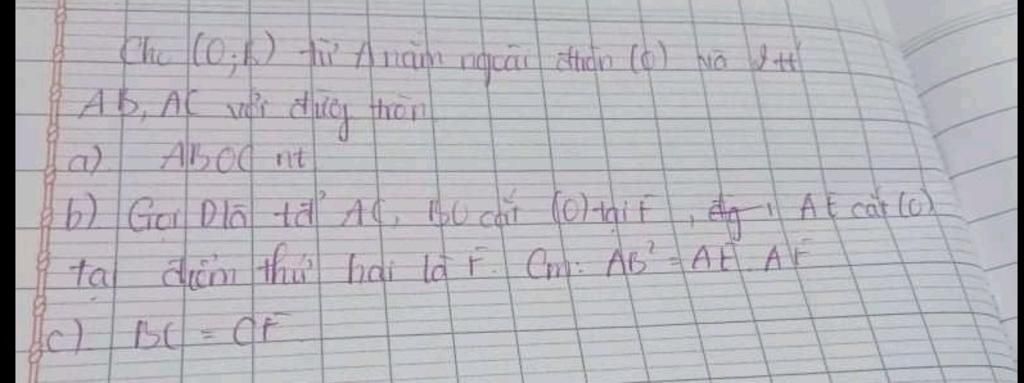 Cho (O;R) từ A nằm ngoài đtròn (O) vẽ 2 tt
AB, AC với đường tròn
a) ABOC nt
b) Gọi D là tđ AC, BD cắt (O) tại E, AE cắt (O)
tại điểm thứ hai là F. Cm: AB² = AE.AF
c) BC = CF